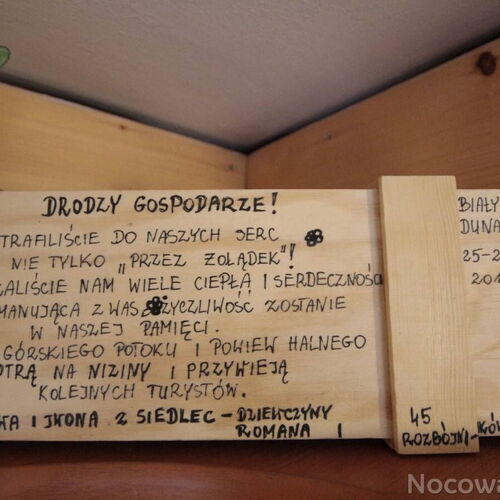 DRODZY GOSPODARZE!
TRAFILIŚCIE DO NASZYCH SERC
NIE TYLKO „PRZEZ ŻOŁĄDEK"!
ALIŚCIE NAM WIELE CIEPŁA I SERDECZNOŚCI
MANUJĄCA Z WAS ŻYCZLIWOŚĆ ZOSTANIE
W NASZEJ PAMIĘCI.
GÓRSKIEGO POTOKU I POWIEW HALNEGO
OTRĄ NA NIZINY I PRZYWIEJĄ
KOLEJNYCH TURYSTÓW.
KA I IKONA Z SIEDLEC - DZIEWCZYNY
ROMANA I
BIAŁY
DUNA
25-2
201
45
ROZBÓJNI-KÓW
Nocowa